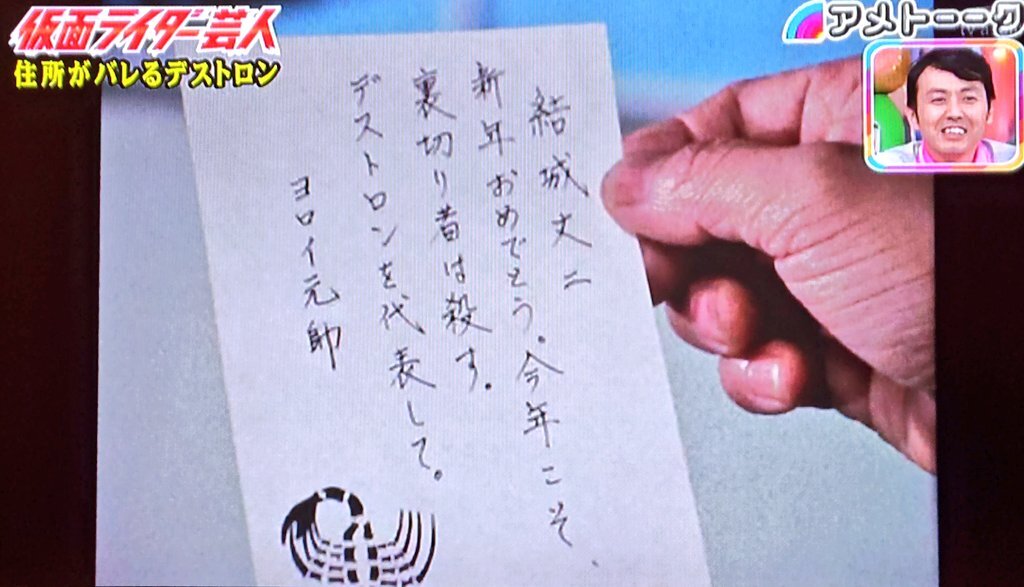 仮面ライダー芸人
住所がバレるデストロン
アメトーーク
結城丈二
新年おめでとう。今年こそ、
裏切り者は殺す。
デストロンを代表して。
ヨロイ元帥